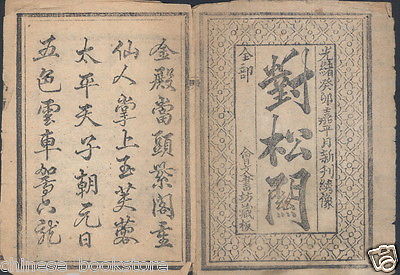 光緒癸卯嘉平月新刊繡像
對松關
全部
會文書坊藏板
金殿當頭紫閣重
仙人掌上玉芙蓉
太平天子朝元日
五色雲車駕六龍